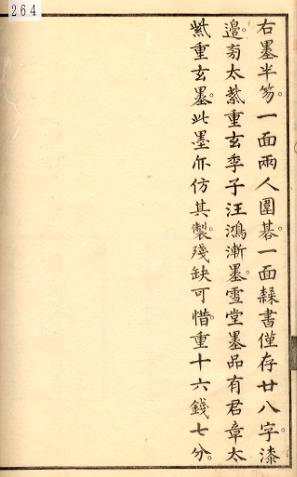 264
右墨半笏。一面兩人圍碁。一面隸書僅存廿八字漆
邊。旁太紫重玄李子汪鴻漸墨。雪堂墨品有君章太
紫重玄墨。此墨亦仿其製。殘缺可惜。重十六錢七分。